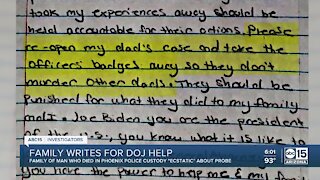 took my experiences away should be
held accountable for their actions. Please
re-open my dad's case and take the
officers badges away so they don't
murder other dads. They should be
punished for what they did to my family
and I. Joe Biden you are the president
of the U.S., you know what it is like to
you have the power to help me & my
ABC15
INVESTIGATORS
FAMILY WRITES FOR DOJ HELP
FAMILY OF MAN WHO DIED IN PHOENIX POLICE CUSTODY "ECSTATIC" ABOUT PROBE
6:01
93°
abc 15
ARIZONA